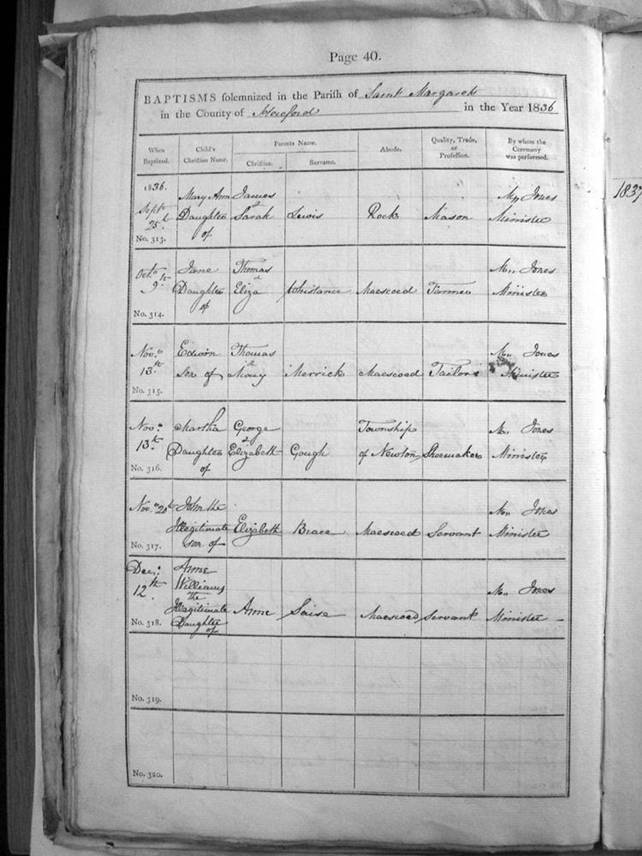 Page 40.
BAPTISMS solemnized in the Parish of Saint Margarets
in the County of Hereford in the Year 1836
When Baptized.
Child's Christian Name.
Parents Name.
Christian.
Surname.
Abode.
Quality, Trade, or Profession.
By whom the Ceremony was performed.
1836.
Septr
25th
No. 313.
Mary Ann
Daughter
of
James
&
Sarah
Lewis
Rock
Mason
Jones
Minister
Octr
9th
No. 314.
Jane
Daughter
of
Thomas
&
Eliza
Whistance
Maescoed
Farmer
Jones
Minister
Novr
13th
No. 315.
Edwin
Son of
Thomas
&
Mary
Merrick
Maescoed
Tailor
Jones
Minister
Novr
13th
No. 316.
Martha
Daughter
of
George
&
Elizabeth
Gough
Township
of Newton
Shoemaker
Jones
Minister
Novr 20th
No. 317.
John the
Illegitimate
son of
Elizabeth
Brace
Maescoed
Servant
Jones
Minister
Decr
12th
No. 318.
Anne
Williams
the
Illegitimate
Daughter
of
Anne
Maescoed
Servant
Jones
Minister
No. 319.
No. 320.
1837